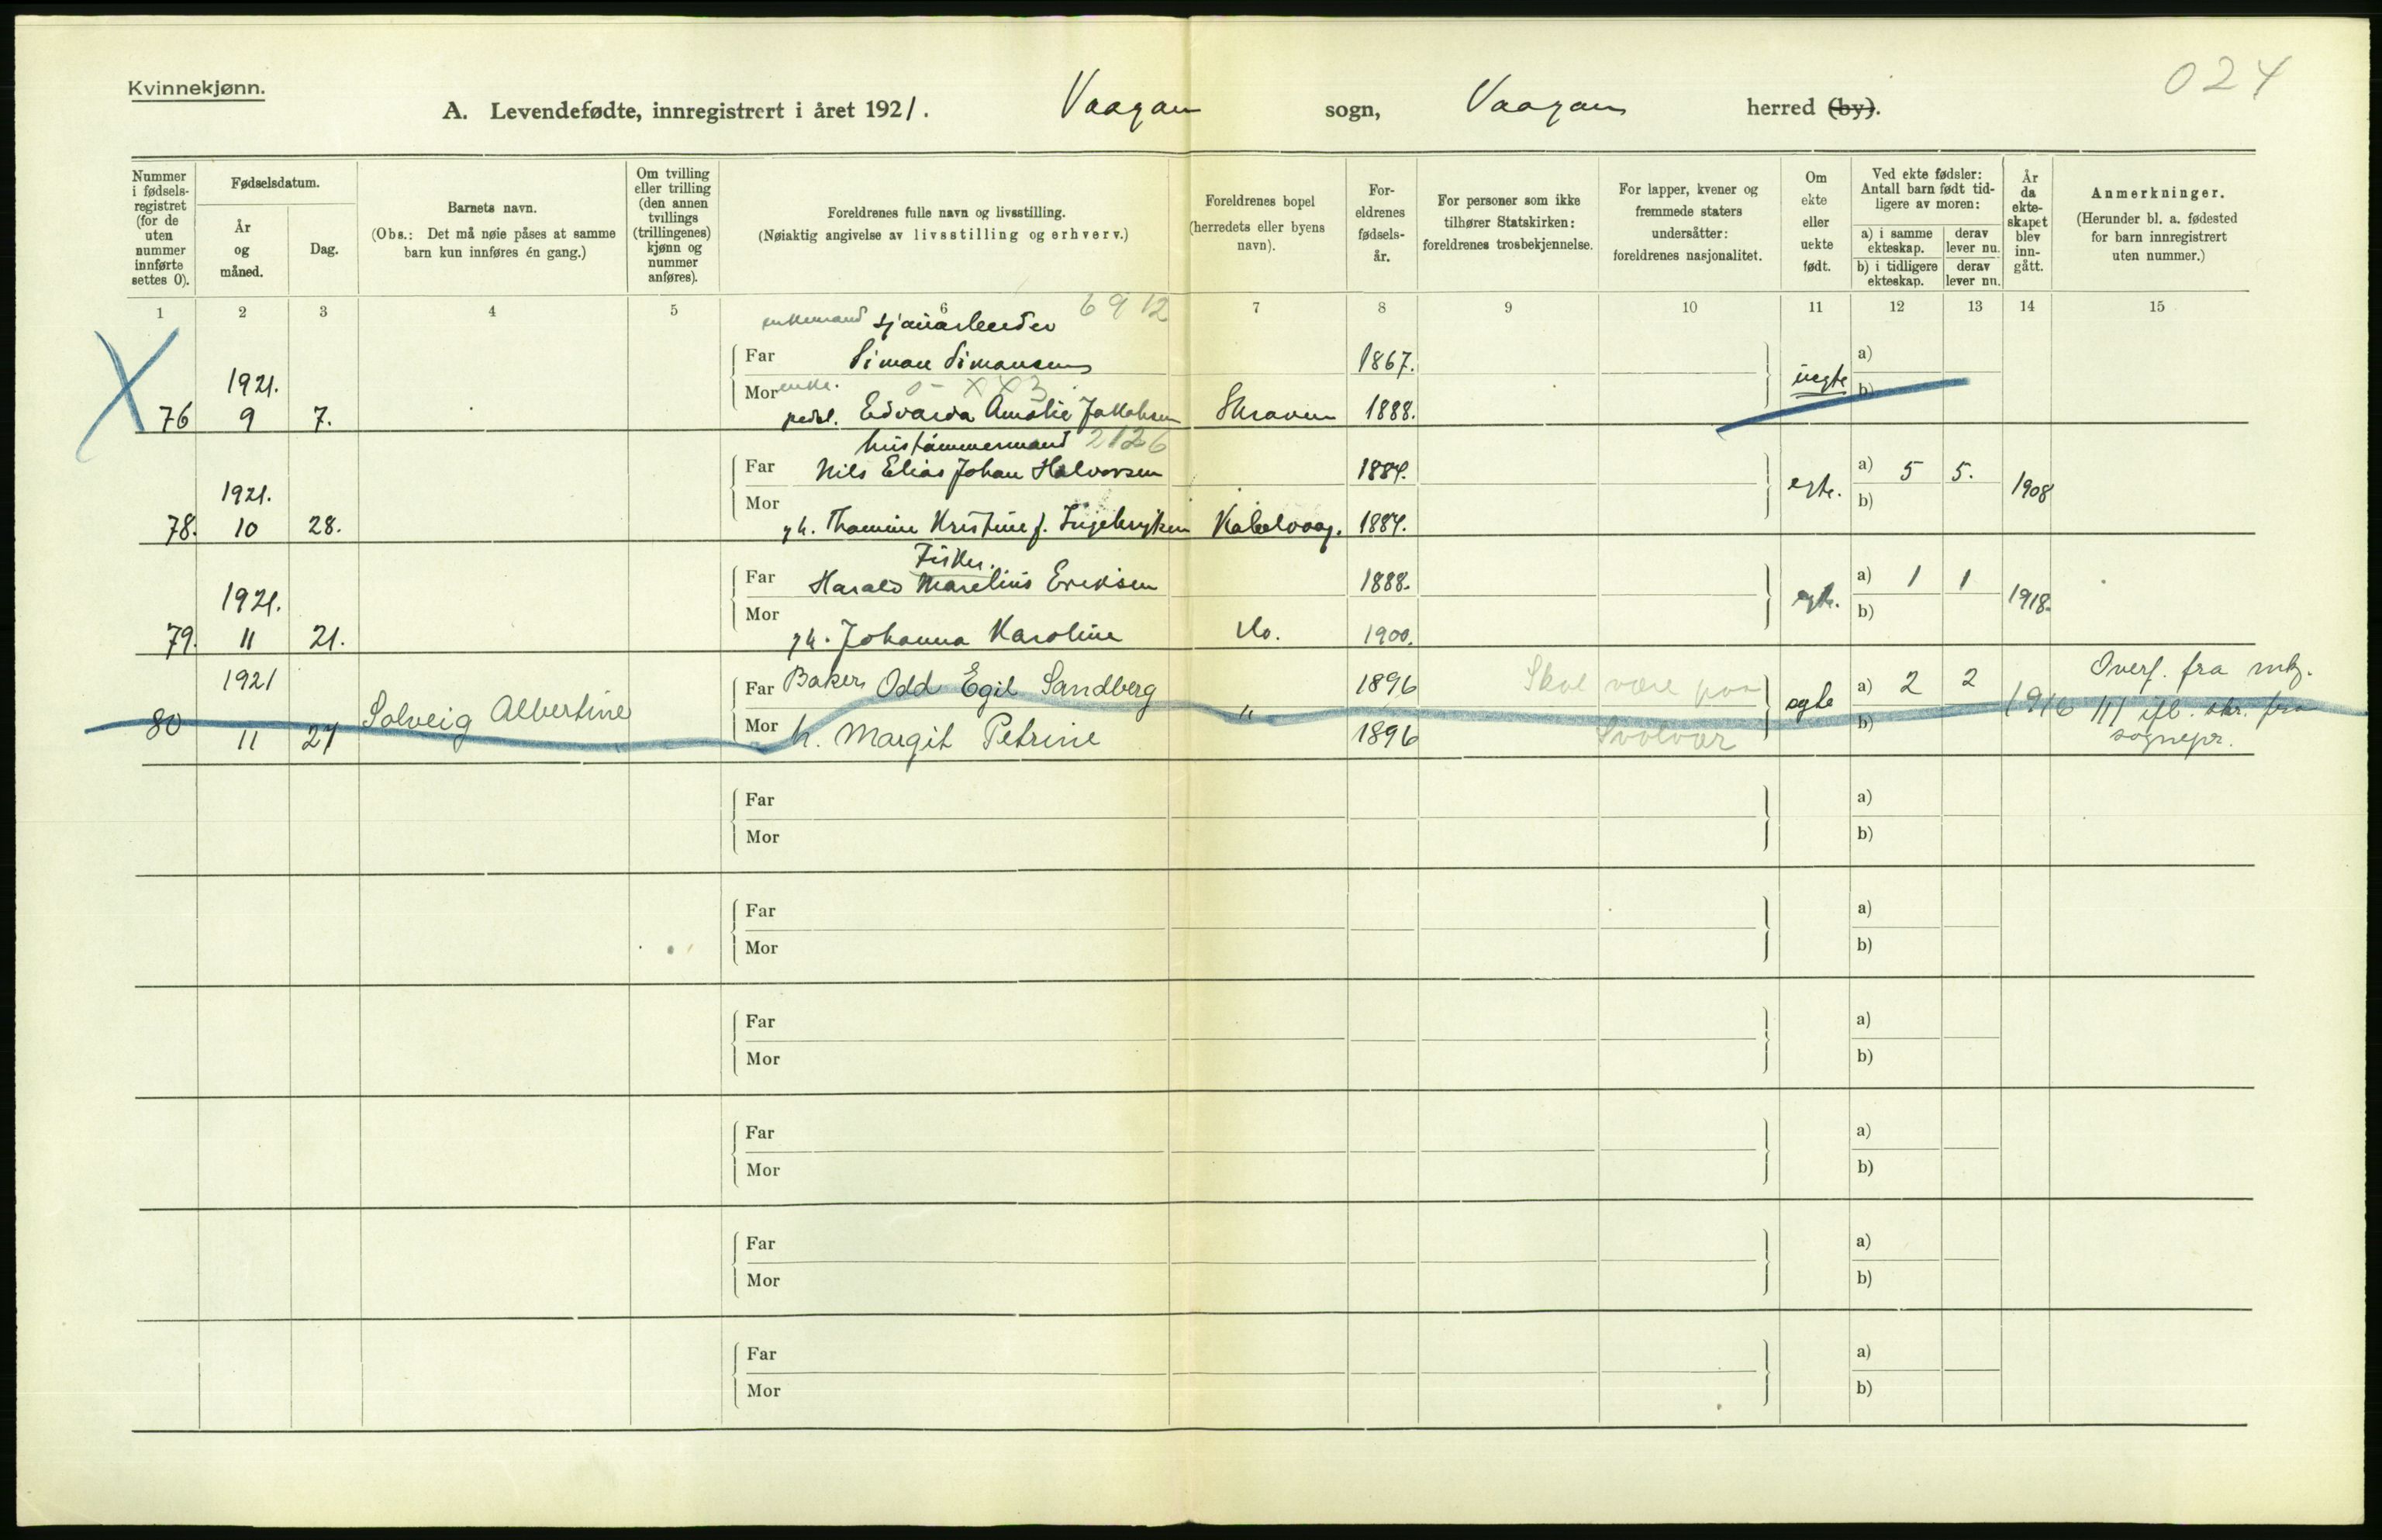 024
Kvinnekjønn.
A. Levendefødte, innregistrert i året 1921. Vaagan sogn, Vaagan herred (by).
Nummer i fødsels-registret (for de uten nummer innførte settes 0).
Fødselsdatum.
År og måned.
Dag.
Barnets navn.
(Obs.: Det må nøie påses at samme barn kun innføres én gang.)
Om tvilling eller trilling (den annen tvillings (trillingenes) kjønn og nummer anføres).
Foreldrenes fulle navn og livsstilling.
(Nøiaktig angivelse av livsstilling og erhverv.)
Foreldrenes bopel (herredets eller byens navn).
For-eldrenes fødsels-år.
For personer som ikke tilhører Statskirken: foreldrenes trosbekjennelse.
For lapper, kvener og fremmede staters undersåtter: foreldrenes nasjonalitet.
Om ekte eller uekte født.
Ved ekte fødsler: Antall barn født tid-ligere av moren:
a) i samme ekteskap.
derav lever nu.
b) i tidligere ekteskap.
derav lever nu.
År da ekte-skapet blev inn-gått.
Anmerkninger.
(Herunder bl. a. fødested for barn innregistrert uten nummer.)
1 2 3 4 5 6 7 8 9 10 11 12 13 14 15
enkemand sjauarbeider 6912
Far Simon Simonsen 1867. a)
1921. Mor enke. 0- X X 3 uegte b)
76 9 7. Edvarda Amalie Jakobsen Skraaven 1888.
hustømmermand 2126
Far Nils Elias Johan Halvorsen 1884. a) 5 5.
1921. Mor egte. b) 1908
78. 10 28. gh. Thomine Kristine f. Ingebrigtsen Kabelvaag. 1884.
Fisker.
Far Harald Marelius Eriksen 1888. a) 1 1
1921. Mor egte. b) 1918.
79. 11 21. gh. Johanna Karoline do. 1900.
1921 Far Baker Odd Egil Sandberg 1896 Skal være paa a) 2 2 Overf. fra mtg.
80 11 21 Solveig Albertine Mor h. Margit Petrine " 1896 Svolvær egte b) 1916 1/1 ifl. skr. fra
sognepr.
Far a)
Mor b)
Far a)
Mor b)
Far a)
Mor b)
Far a)
Mor b)
Far a)
Mor b)
Far a)
Mor b)